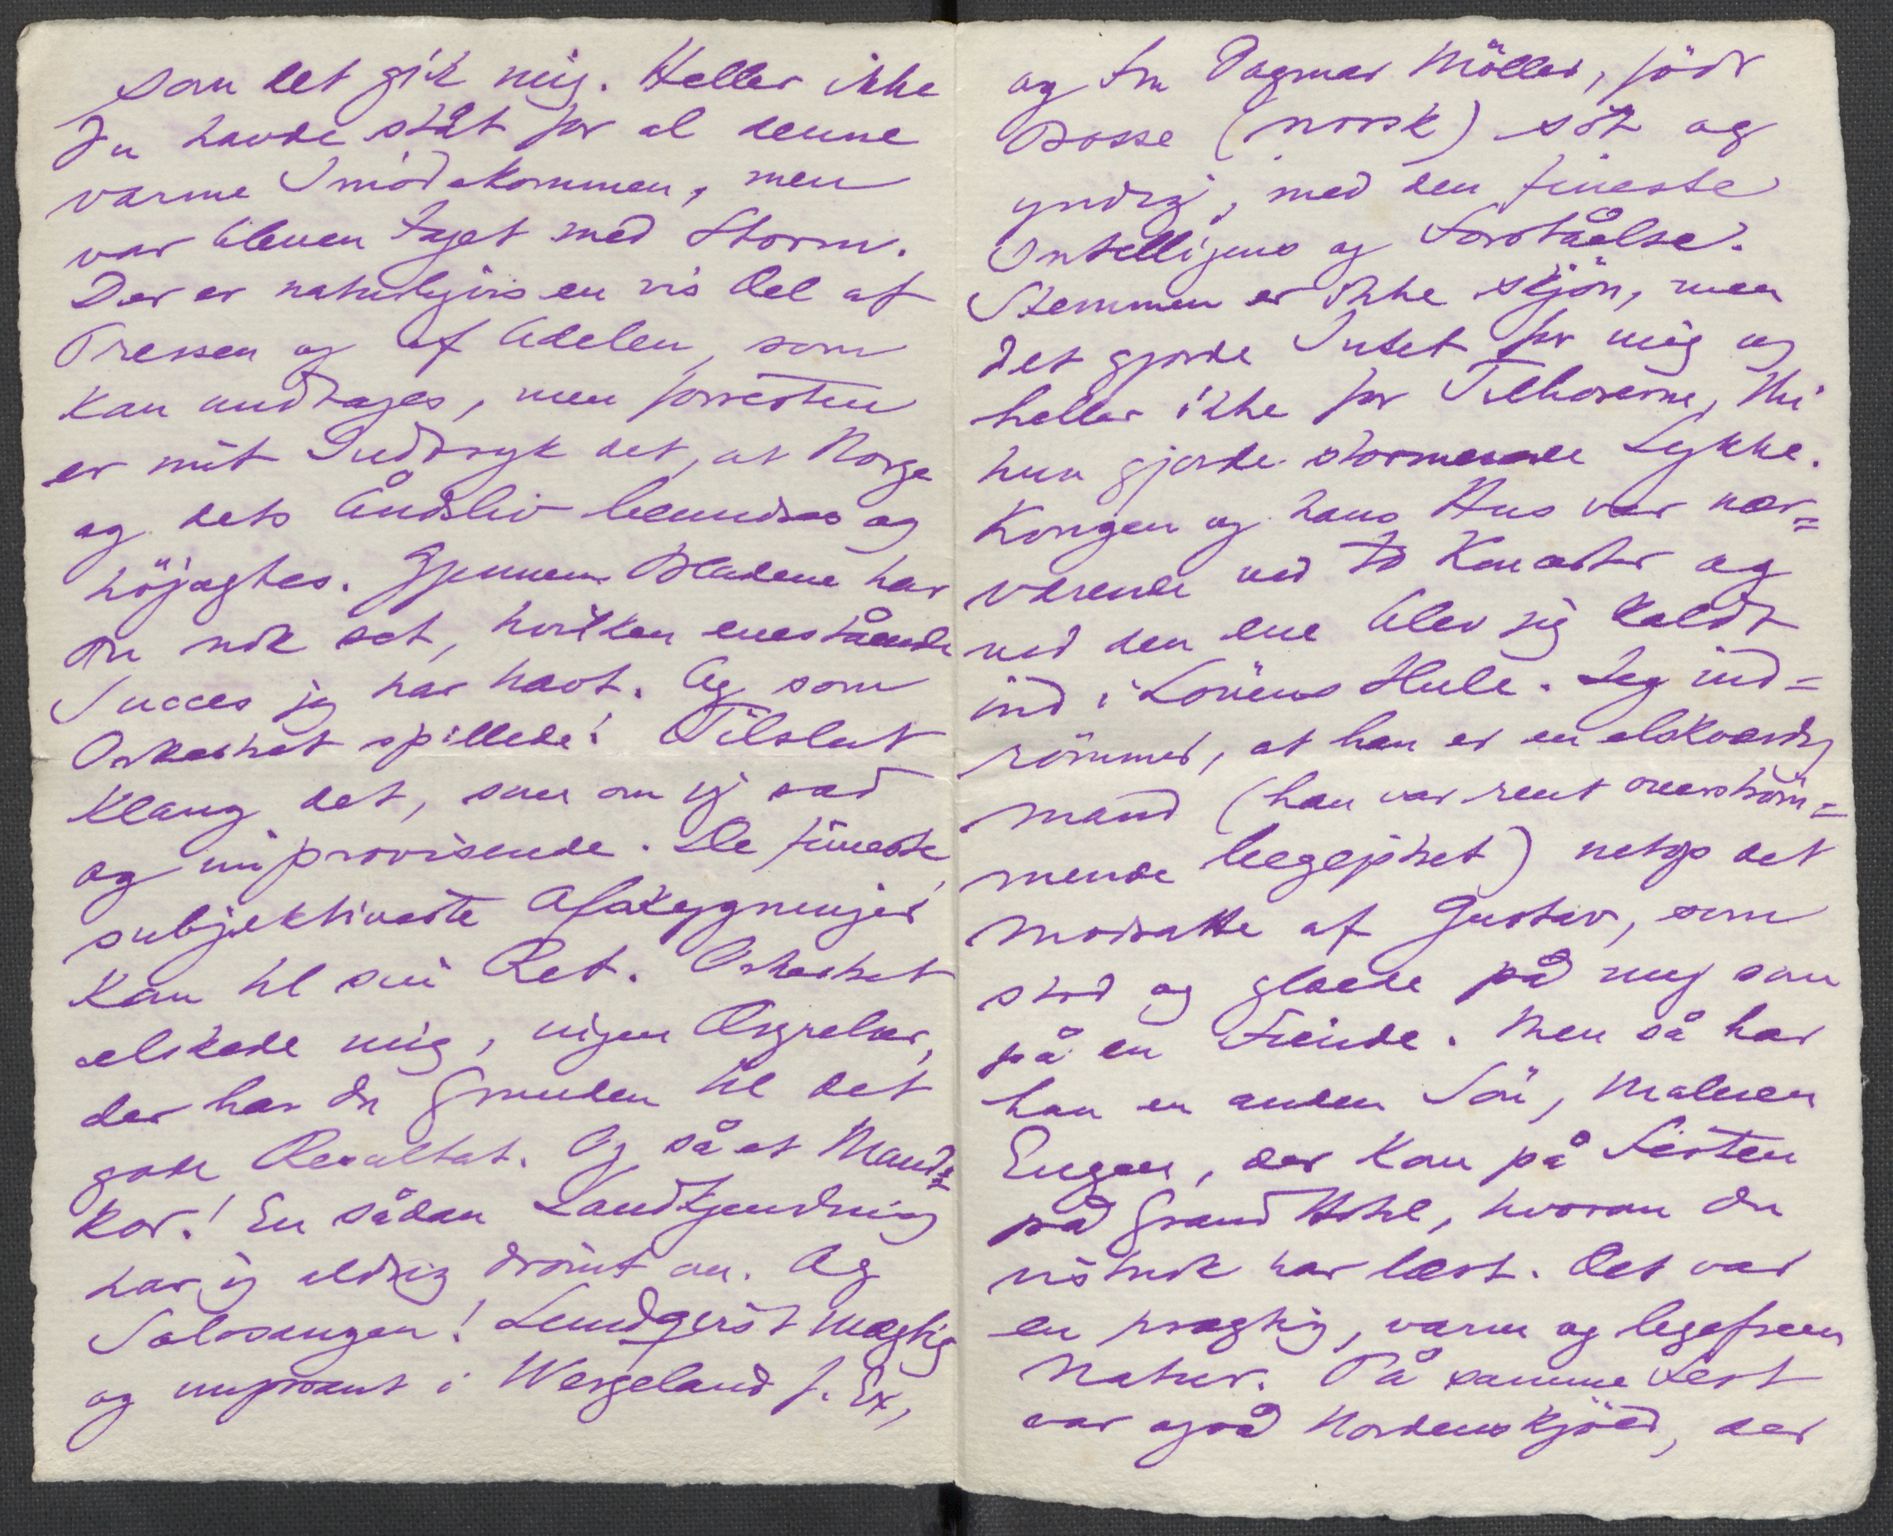 som det gik mig. Heller ikke
Du havde ståt for al denne
varme Imödekommen, men
var bleven taget med Storm.
Der er naturligvis en vis Del af
Pressen og af Adelen, som
kan undtages, men forresten
er mit Indtryk det, at Norge
og dets Åndsliv beundres og
höjagtes. Gjennem Bladene har
Du nok set, hvilken enestående
Succes jeg har havt. Og som
Orkestret spillede! Tilslut
klang det, som om jeg sad
og improviserede. De fineste,
subjektiveste Afskygninger
kom til sin Ret. Orkestret
elskede mig, ingen Ærgrelser,
der har Du Grunden til det
gode Resultat. Og så et Mands=
kor! En sådan Landkjending
har jeg aldrig drömt om. Og
Solosangen! Lundqvist mægtig
og imposant i Wergeland f. Ex,
og Fru Dagmar Möller, född
Bosse (norsk) söt og
yndig, med den fineste
Intelligens og Forståelse.
Stemmen er ikke skjön, men
det gjorde Intet for mig og
heller ikke for Tilhörerne, thi
hun gjorde stormende Lykke.
Kongen og hans Hus var nær=
værende ved to Koncerter og
ved den ene blev jeg kaldt
ind i Lövens Hule. Jeg ind=
römmer, at han er en elskværdig
Mand (han var rent overström=
mende begejstret) netop det
modsatte af Gustav, som
stod og gloede på mig som
på en Fiende. Men så har
han en anden Sön, Maleren
Eugen, der kom på Festen
på Grand Hotel, hvorom Du
vistnok har læst. Det var
en prægtig, varm og ligefrem
Natur. På samme Fest
var også Nordenskjöld, der